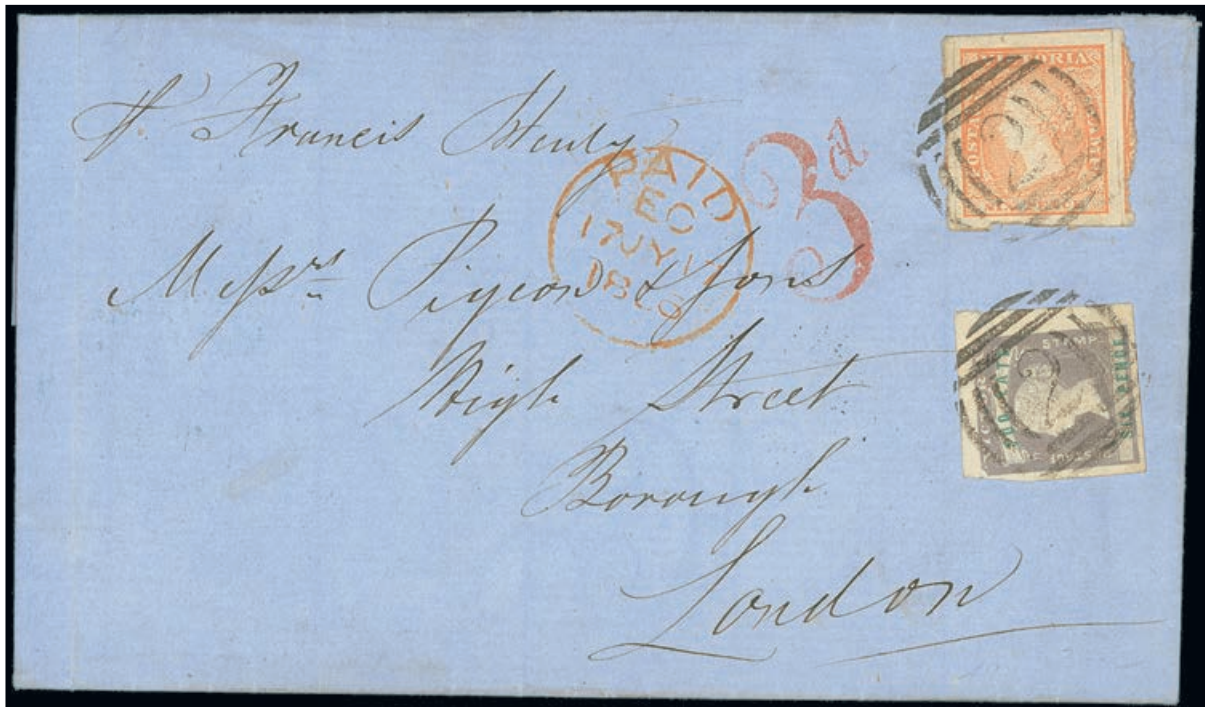 pr. Francis Henty
PAID
EO
17 JY 17
1856
3d
Messrs Pigeon & Sons
High Street
Borough
London
VICTORIA
POSTAGE
STAMP
2
STAMP
TOO LATE
SIX PENCE
2